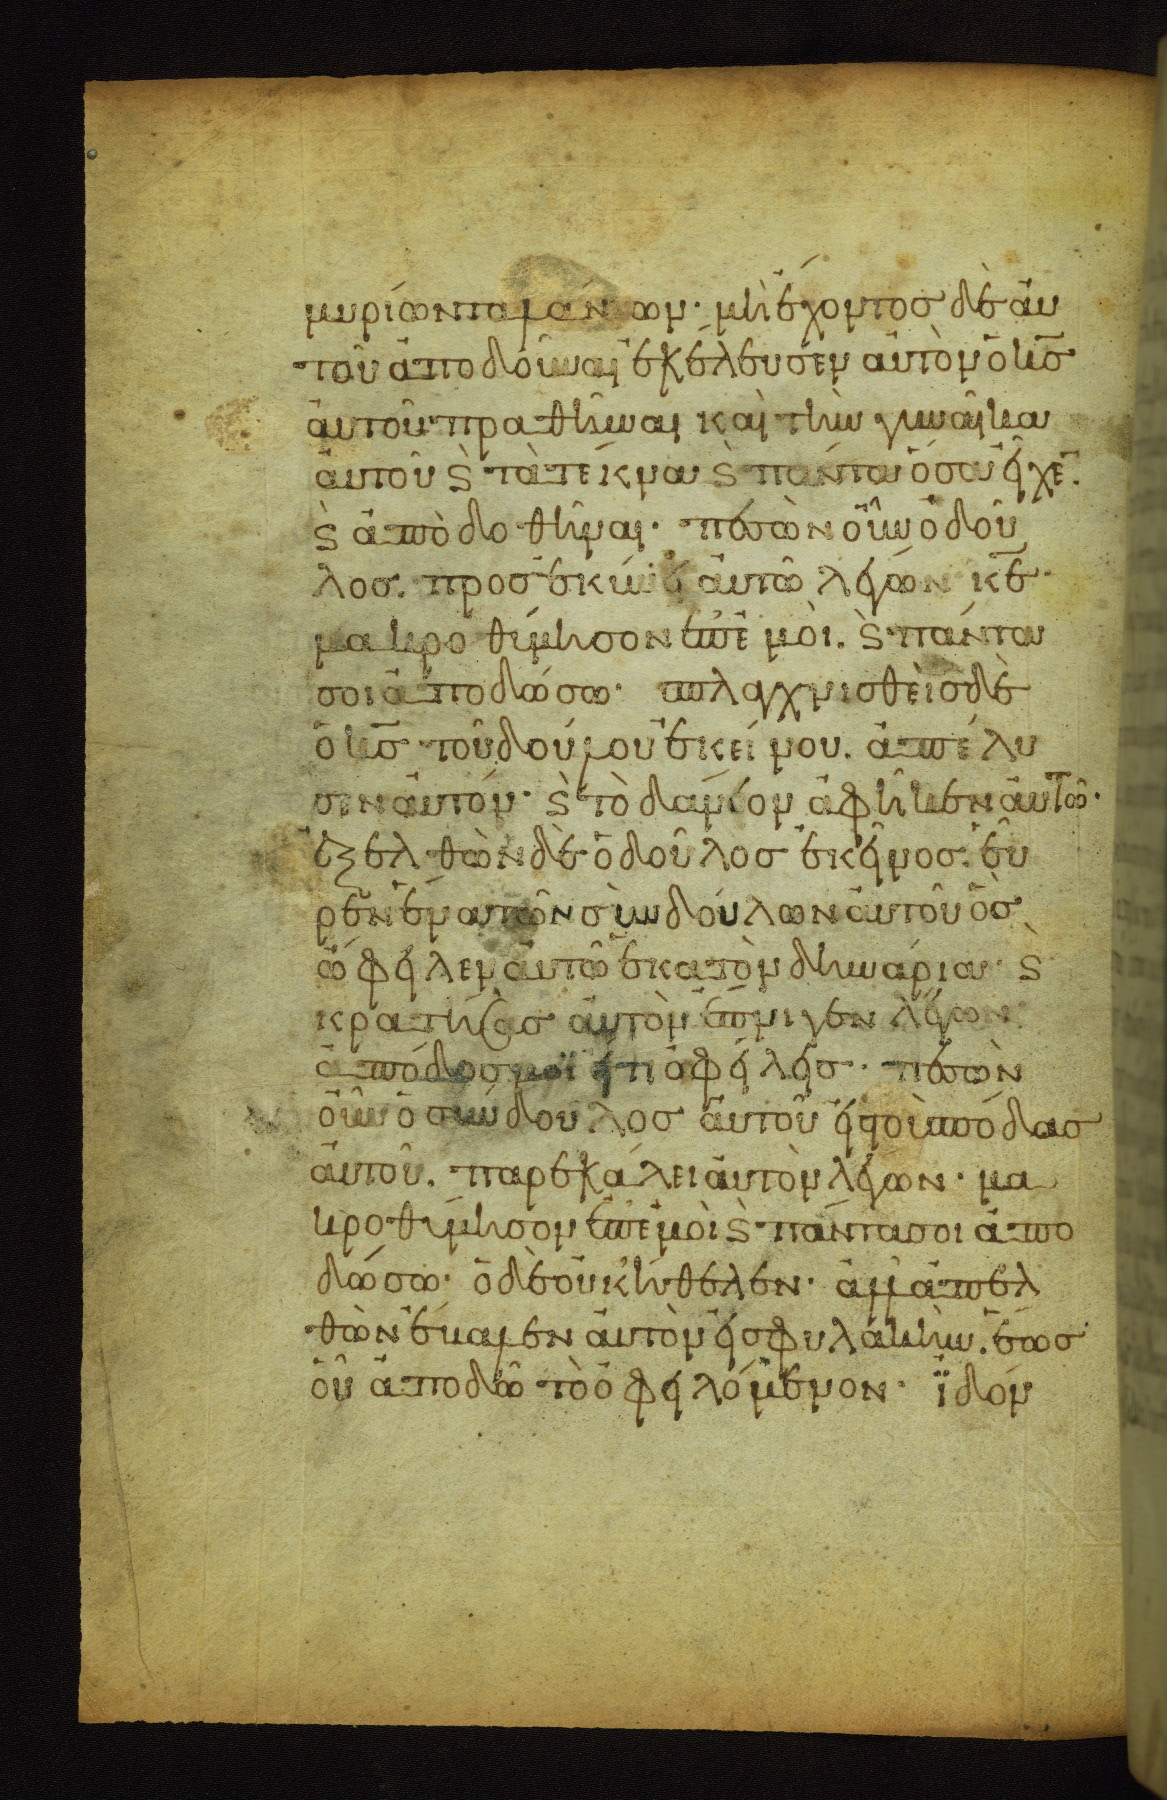 μυρίων ταλάντων· μὴ ἔχοντος δὲ αὐ
τοῦ ἀποδοῦναι ἐκέλευσεν αὐτὸν ὁ κ̅ς̅
αὐτοῦ πραθῆναι καὶ τὴν γυναῖκα
αὐτοῦ ϗ τὰ τέκνα ϗ πάντα ὅσα εἶχε̅.
ϗ ἀποδοθῆναι· πεσὼν οὖν ὁ δοῦ
λος. προσεκύνει αὐτῶ λέγων κ̅ε̅
μακροθύμησον ἐπ' ἐμοὶ. ϗ πάντα
σοι ἀποδώσω· σπλαγχνισθεὶς δὲ
ὁ κ̅ς̅ τοῦ δούλου ἐκείνου. ἀπέλυ
σεν αὐτόν· ϗ τὸ δάνιον ἀφῆκεν αὐτῶ·
ἐξελθὼν δὲ ὁ δοῦλος ἐκεῖνος. εὗ
ρεν ἕνα τῶν συνδούλων αὐτοῦ ὃς
ὤφειλεν αὐτῶ ἑκατὸν δηνάρια· ϗ
κρατήσας αὐτὸν ἔπνιγεν λέγων
ἀπόδος μοϊ εἴ τι ὀφείλεις· πεσὼν
οὖν ὁ σύνδουλος αὐτοῦ εἰς τοὺς πόδας
αὐτοῦ. παρεκάλει αὐτὸν λέγων· μα
κροθύμησον ἐπ' ἐμοὶ ϗ πάντα σοι ἀπο
δώσω· ὁ δὲ οὐκ ἤθελεν· ἀλλὰ ἀπελ
θὼν ἔβαλεν αὐτὸν εἰς φυλακήν. ἕως
οὗ ἀποδῶ τὸ ὀφειλόμενον· ἰδόν